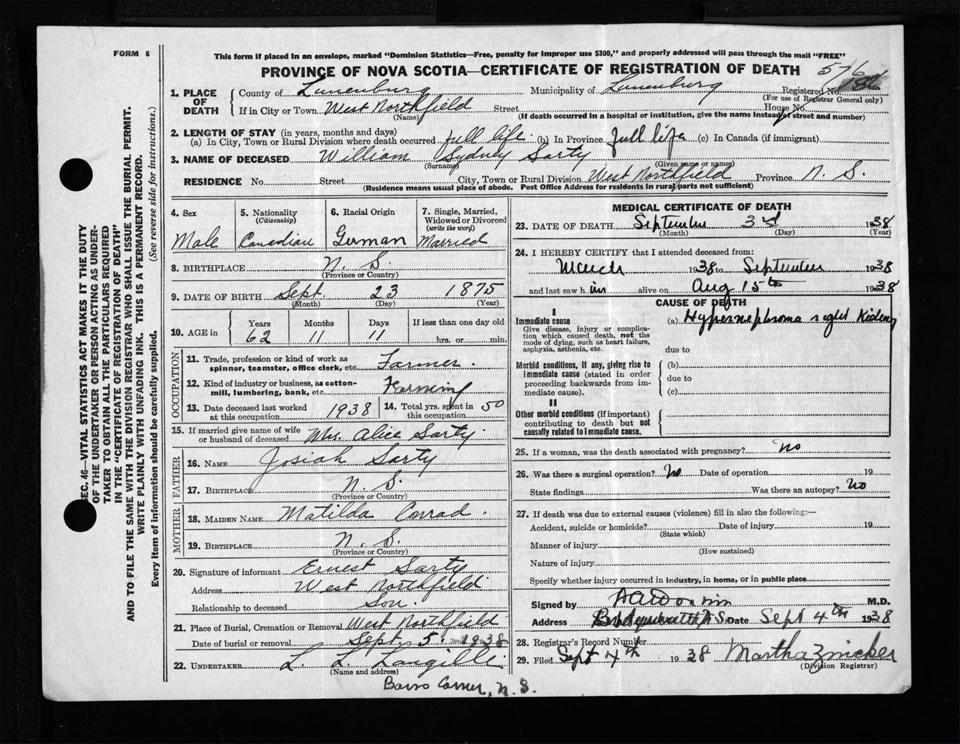 FORM 6
This form if placed in an envelope, marked "Dominion Statistics—Free, penalty for improper use $300," and properly addressed will pass through the mail "FREE"
PROVINCE OF NOVA SCOTIA—CERTIFICATE OF REGISTRATION OF DEATH
1. PLACE OF DEATH County of Lunenburg Municipality of Lunenburg Registered No. 576
(For use of Registrar General only)
If in City or Town West Northfield Street House No.
(Name) (If death occurred in a hospital or institution, give the name instead of street and number)
2. LENGTH OF STAY (in years, months and days)
(a) In City, Town or Rural Division where death occurred full life (b) In Province full life (c) In Canada (if immigrant)
3. NAME OF DECEASED William Sydney Sarty
(Surname) (Given name or names)
RESIDENCE No. Street City, Town or Rural Division West Northfield Province N. S.
(Residence means usual place of abode. Post Office Address for residents in rural parts not sufficient)
4. Sex Male
5. Nationality (Citizenship) Canadian
6. Racial Origin German
7. Single, Married, Widowed or Divorced (write the word) Married
8. BIRTHPLACE N. S.
(Province or Country)
9. DATE OF BIRTH Sept. 23 1875
(Month) (Day) (Year)
10. AGE in Years Months Days If less than one day old
62 11 11 hrs. or min.
OCCUPATION
11. Trade, profession or kind of work as spinner, teamster, office clerk, etc. Farmer
12. Kind of industry or business, as cotton-mill, lumbering, bank, etc. Farming
13. Date deceased last worked at this occupation 1938
14. Total yrs. spent in this occupation 50
15. If married give name of wife or husband of deceased Mrs. Alice Sarty
FATHER
16. NAME Josiah Sarty
17. BIRTHPLACE N. S.
(Province or Country)
MOTHER
18. MAIDEN NAME Matilda Conrad
19. BIRTHPLACE N. S.
(Province or Country)
20. Signature of informant Ernest Sarty
Address West Northfield
Relationship to deceased Son
21. Place of Burial, Cremation or Removal West Northfield
Date of burial or removal Sept. 5. 1938
22. UNDERTAKER L. L. Langille
(Name and address)
Bars Corner, N. S.
MEDICAL CERTIFICATE OF DEATH
23. DATE OF DEATH September 3rd 1938
(Month) (Day) (Year)
24. I HEREBY CERTIFY that I attended deceased from:
March 1938 to September 1938
and last saw him alive on Aug 15th 1938
CAUSE OF DEATH
I
Immediate cause (a) Hypernephroma right Kidney
Give disease, injury or complication which caused death, not the mode of dying, such as heart failure, asphyxia, asthenia, etc.
due to
Morbid conditions, if any, giving rise to immediate cause (stated in order proceeding backwards from immediate cause).
(b)
due to
(c)
II
Other morbid conditions (if important) contributing to death but not causally related to immediate cause.
25. If a woman, was the death associated with pregnancy? No
26. Was there a surgical operation? No Date of operation 19
State findings Was there an autopsy? No
27. If death was due to external causes (violence) fill in also the following:—
Accident, suicide or homicide? Date of injury 19
(State which)
Manner of injury
(How sustained)
Nature of injury
Specify whether injury occurred in industry, in home, or in public place
Signed by M.D.
Address N.S. Date Sept 4th 1938
28. Registrar's Record Number
29. Filed Sept 4th 1938 Martha Zwicker
(Division Registrar)
SEC. 46—VITAL STATISTICS ACT MAKES IT THE DUTY
OF THE UNDERTAKER OR PERSON ACTING AS UNDER-
TAKER TO OBTAIN ALL THE PARTICULARS REQUIRED
IN THE "CERTIFICATE OF REGISTRATION OF DEATH"
AND TO FILE THE SAME WITH THE DIVISION REGISTRAR WHO SHALL ISSUE THE BURIAL PERMIT.
WRITE PLAINLY WITH UNFADING INK. THIS IS A PERMANENT RECORD.
Every item of information should be carefully supplied. (See reverse side for instructions.)